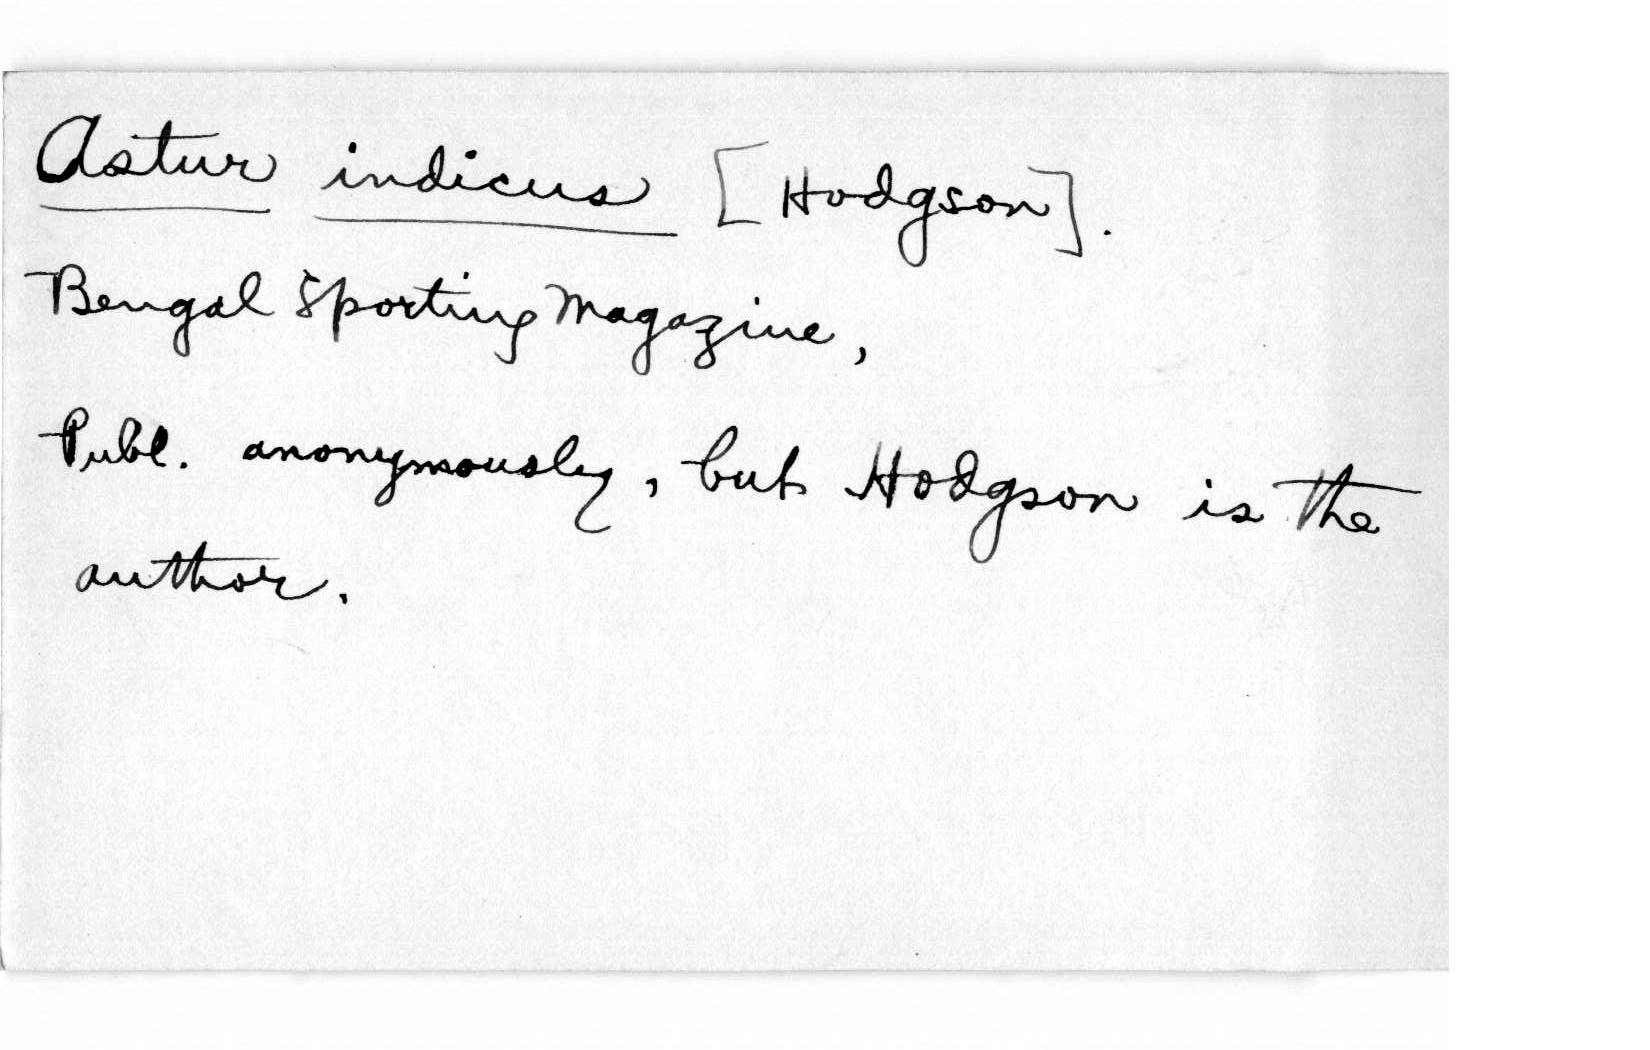 Astur indicus [Hodgson].
Bengal Sporting Magazine,
Publ. anonymously, but Hodgson is the
author.